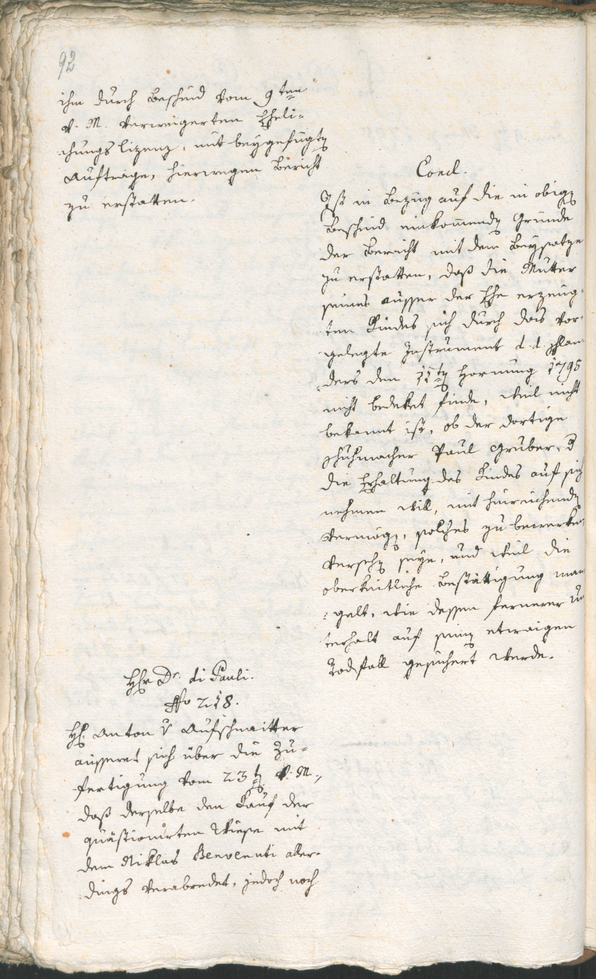 92
ihm durch Bescheid vom 9ten
v. M. verweigerten Eheli-
chungs lizenz, mit beygefügtem
Auftrage, hierwegen Bericht
zu erstatten.
Concl.
Ist in Bezug auf die in obigen
Bescheid einkommenden Gründe
der Bericht mit dem Beysatze
zu erstatten, daß die Mutter
seines ausser der Ehe erzeug-
ten Kindes sich durch das vor-
gelegte Instrument d. d. Flan-
ders den 11ten Hornung 1795
nicht bedeket finde, weil nicht
bekannt ist, ob der dortige
Schuhmacher Paul Gruber, der
die Erhaltung des Kindes auf sich
nehmen will, mit hinreichenden
Vermögen, solches zu bewerken
versehen seye, und weil die
oberkeitliche Bestättigung man-
gelt, wie dessen fernerer Un-
terhalt auf seinen etwaigen
Todfall gesichert werde.
Hr Dr. di Pauli.
No 218.
H. Anton v Aufschnaitter
äusseret sich über die Zu-
fertigung vom 23ten v. M.,
daß derselbe den Kauf der
quästionirten Wiese mit
dem Niklas Benvenuti aller-
dings verabredet, jedoch noch